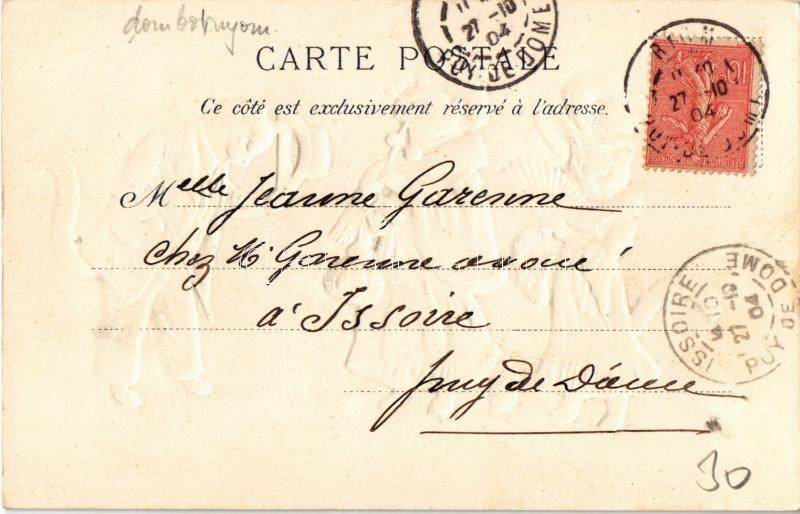 dombornyom.
CARTE POSTALE
Ce côté est exclusivement réservé à l'adresse.
27 -10
04
PUY-DE-DOME
RIOM
27 -10
04
10
Melle Jeanne Garenne
chez Mr Garenne avoué
à Issoire
puy de Dôme
ISSOIRE
27 -10
04
PUY-DE-DOME
30